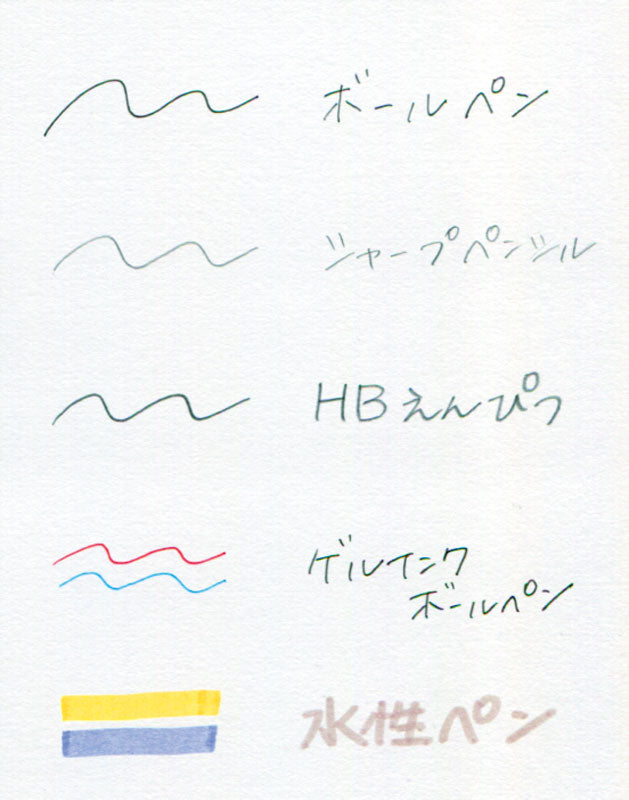 ボールペン
シャープペンシル
HBえんぴつ
ゲルインク
ボールペン
水性ペン